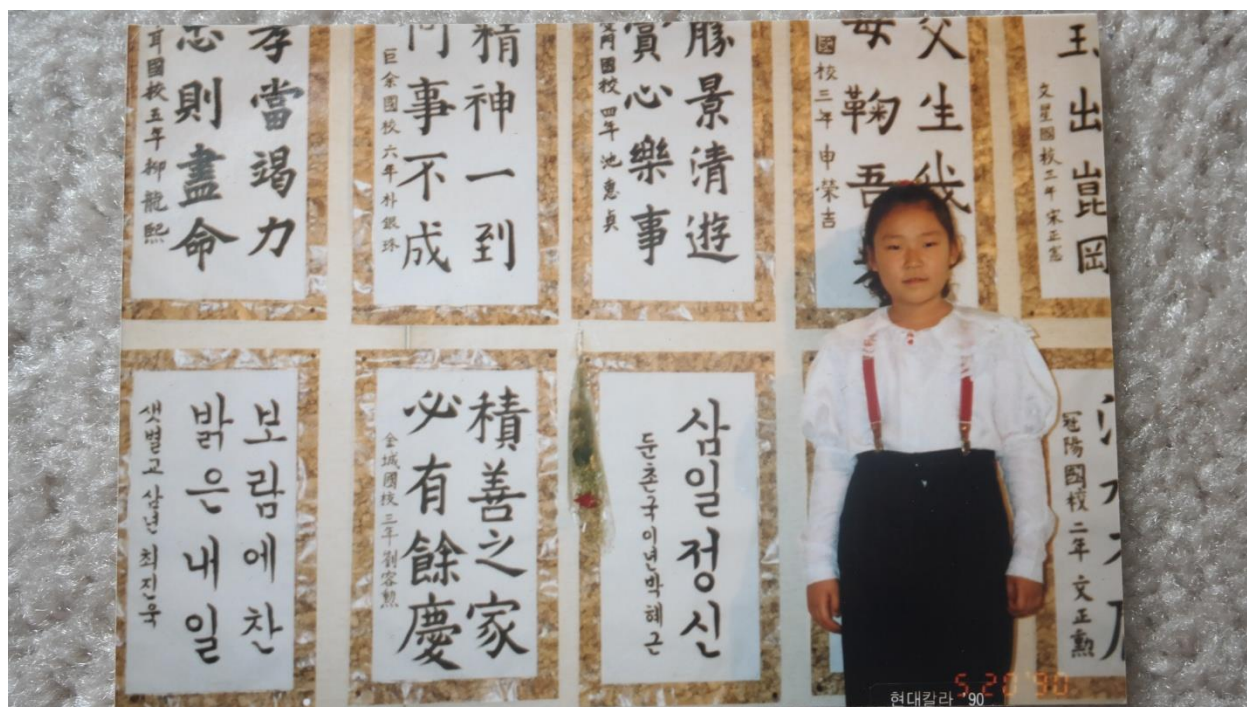 孝當竭力
忠則盡命
國校五年 柳龍熙
精神一到
何事不成
巨余國校 六年 朴銀珠
勝景清遊
賞心樂事
國校 四年 池惠貞
父生我
母鞠吾
國校三年 申榮吉
玉出崑岡
文星國校三年 宋正憲
보람에찬
밝은내일
샛별교 삼년 최진욱
積善之家
必有餘慶
金城國校 三年 劉容勲
삼일정신
둔촌국이년박혜근
冠陽國校 二年 文正勳
5.20'90
현대칼라 '90